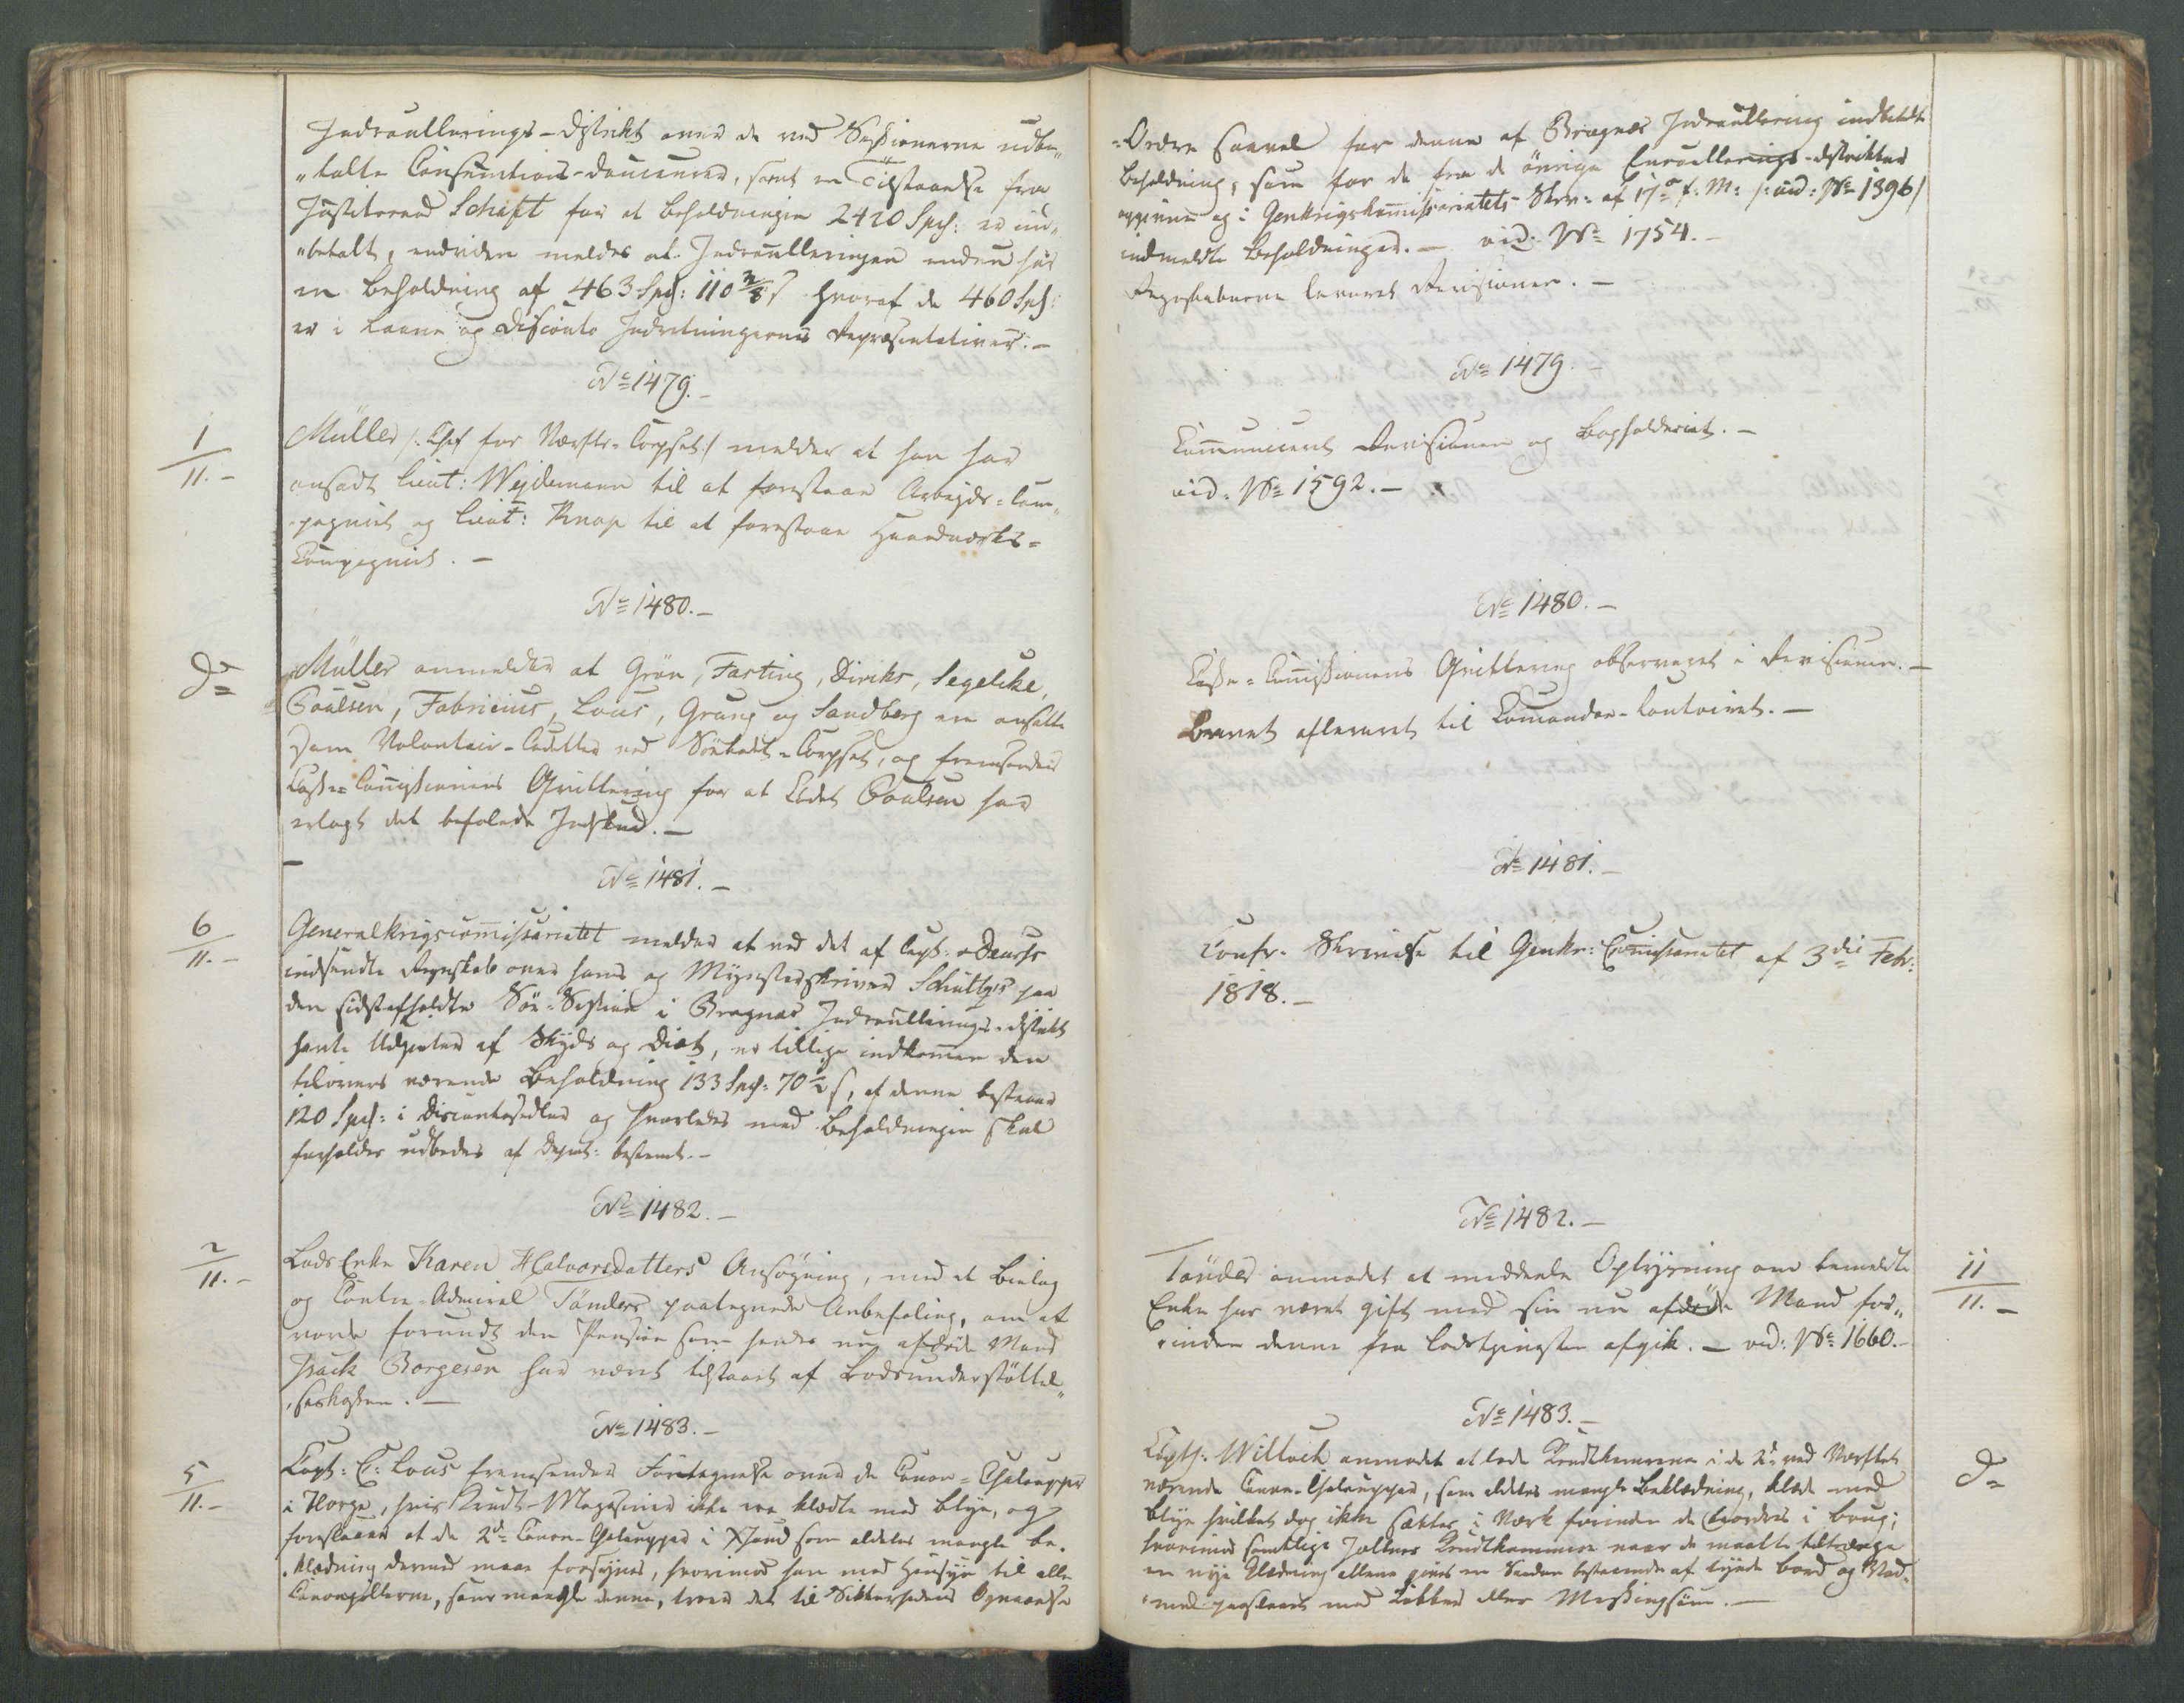 Indroullerings-Distrikt over de ved Sessionerne udbe„
„talte Consumtions-Douceurer, samt en Tilstaaelse fra
Justitsraad Schafft for at Beholdningen 2420 Spd: er ind„
„betalt, endvidere meldes at Indroulleringen endnu har
en Beholdning af 463 Spd: 110 3/8 s hvoraf de 460 Spd:
er i Laane og Disconto Indretningernes Repræsentativer. –
No 1479. –
1/11. –
Müller /: Chef for Værfts-Corpset :/ melder at han har
ansadt Lieut: Wejdemann til at forestaae Arbejds-Com„
„pagniet og Lieut: Knap til at forestaae Haandværks-
Compagniet. –
No 1480. –
Do
Müller anmelder at Grön, Fasting, Diriks, Segelcke,
Paulsen, Fabricius, Lous, Grung og Sandberg ere ansatte
som Volontair-Cadetter ved Söekadet-Corpset, og fremsender
Casse-Commissionens Qvittering for at Cadet Paulsen har
erlagt det befalede Indskud. –
No 1481. –
6/11. –
Generalkrigscommissariatet melder at ved det af Capt:
indsendte Regnskab over hans og Mynsterskriver Schültzes paa
den sidstafholdte Söe-Session i Bragnæs Indroullerings-Distrikt
havte Udgivter af Skyds og Diæt, er tillige indkommen den
tilovers værende Beholdning 133 Spd: 70 1/2 s, af denne bestaaer
120 Spd: i Discontosedler og hvorledes med Beholdningen skal
forholdes udbedes af Depart: bestemt. –
No 1482. –
2/11. –
Lods Enke Karen Halvorsdatters Ansögning, med et Bielag
og Contre-Admiral Tönders paategnede Anbefaling, om at
vorde forundt den Pension som hendes nu afdöde Mand
Isack Borgesen har været tilstaaet af Lodsunderstöttel„
„seskassen. –
No 1483. –
5/11. –
Capt: C: Lous fremsender Fortegnelse over de Canon-Chalupper
i Norge, hvis Krudt-Magasiner ikke ere klædte med Blye, og
foreslaaer at de 2de Canon-Chalupper i Xsund som aldeles mangle be„
„klædning dermed maae forsynes, hvorimod han med Hensyn til alle
Canonjollerne, som mangle denne, troer det til Sikkerhedens Opnaaelse
„Ordre saavel for denne af Bragnæs Indroullering indbetalte
Beholdning, som for de fra de övrige Enroullerings-Distrikter
oppinne og i Genkrigskommissariatets Skr: af 17de f: M: /: vid: No 1396 /
indmeldte Beholdninger. – vid: No 1754. –
Regnskaberne leveret Revisionen. –
No 1479. –
Communiceret Revisionen og Bogholderiet. –
vid: No 1592. –
No 1480. –
Casse-Commissionens Qvittering observeret i Revisionen. –
Brevet afleveret til Commando-Contoiret. –
No 1481. –
Confr. Skrivelse til Genkr: Commissariatet af 3die Febr:
1818. –
No 1482. –
Tönder anmodet at meddeele Oplysning om bemeldte
Enke har været gift med sin nu afdöde Mand for„
„inden denne fra Lodstjenesten afgik. – vid: No 1660. –
11/11. –
No 1483. –
Capt: Willoch anmodet at lade Krudtkamrene i de 2de ved Værftet
værende Canon-Chalupper, som aldeles mangle Beklædning, klæde med
Blye hvilket dog ikke sættes i Værk forinden de fordres i Brug;
hvorimod samtlige Jollers Krudtkammere naar de maatte tiltrænge
en nye Klædning allene gives en Saadan bestaaende af tynde Bord og Vad„
„mel paaslaaet med Kobber eller Messingsöm. –
Do